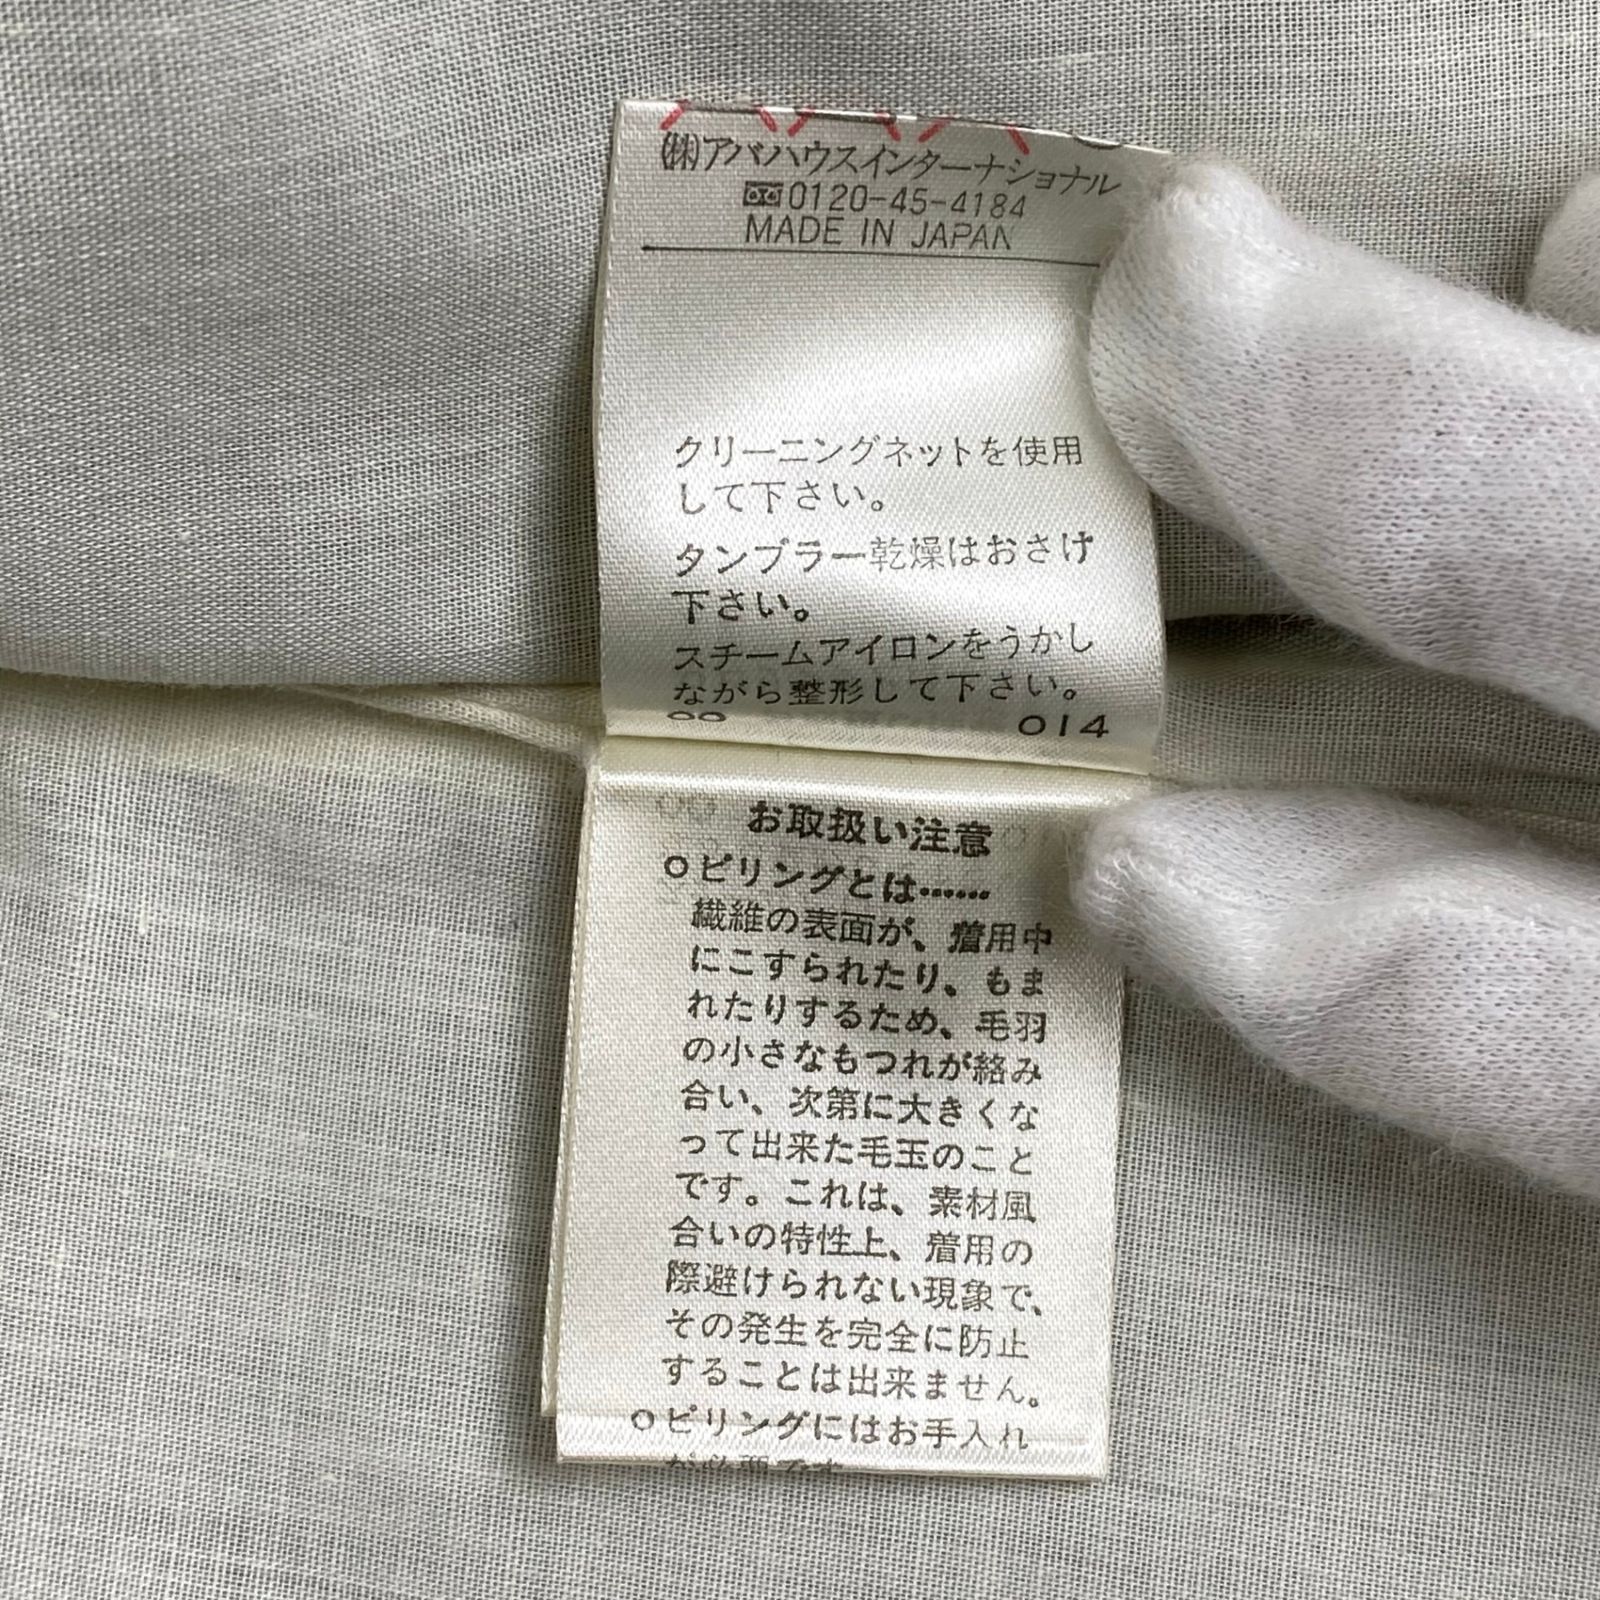 ㈱アバハウスインターナショナル
0120-45-4184
MADE IN JAPAN
クリーニングネットを使用
して下さい。
タンブラー乾燥はおさけ
下さい。
スチームアイロンをうかし
ながら整形して下さい。
00 014
お取扱い注意
○ピリングとは……
繊維の表面が、着用中
にこすられたり、もま
れたりするため、毛羽
の小さなもつれが絡み
合い、次第に大きくな
って出来た毛玉のこと
です。これは、素材風
合いの特性上、着用の
際避けられない現象で、
その発生を完全に防止
することは出来ません。
○ピリングにはお手入れ